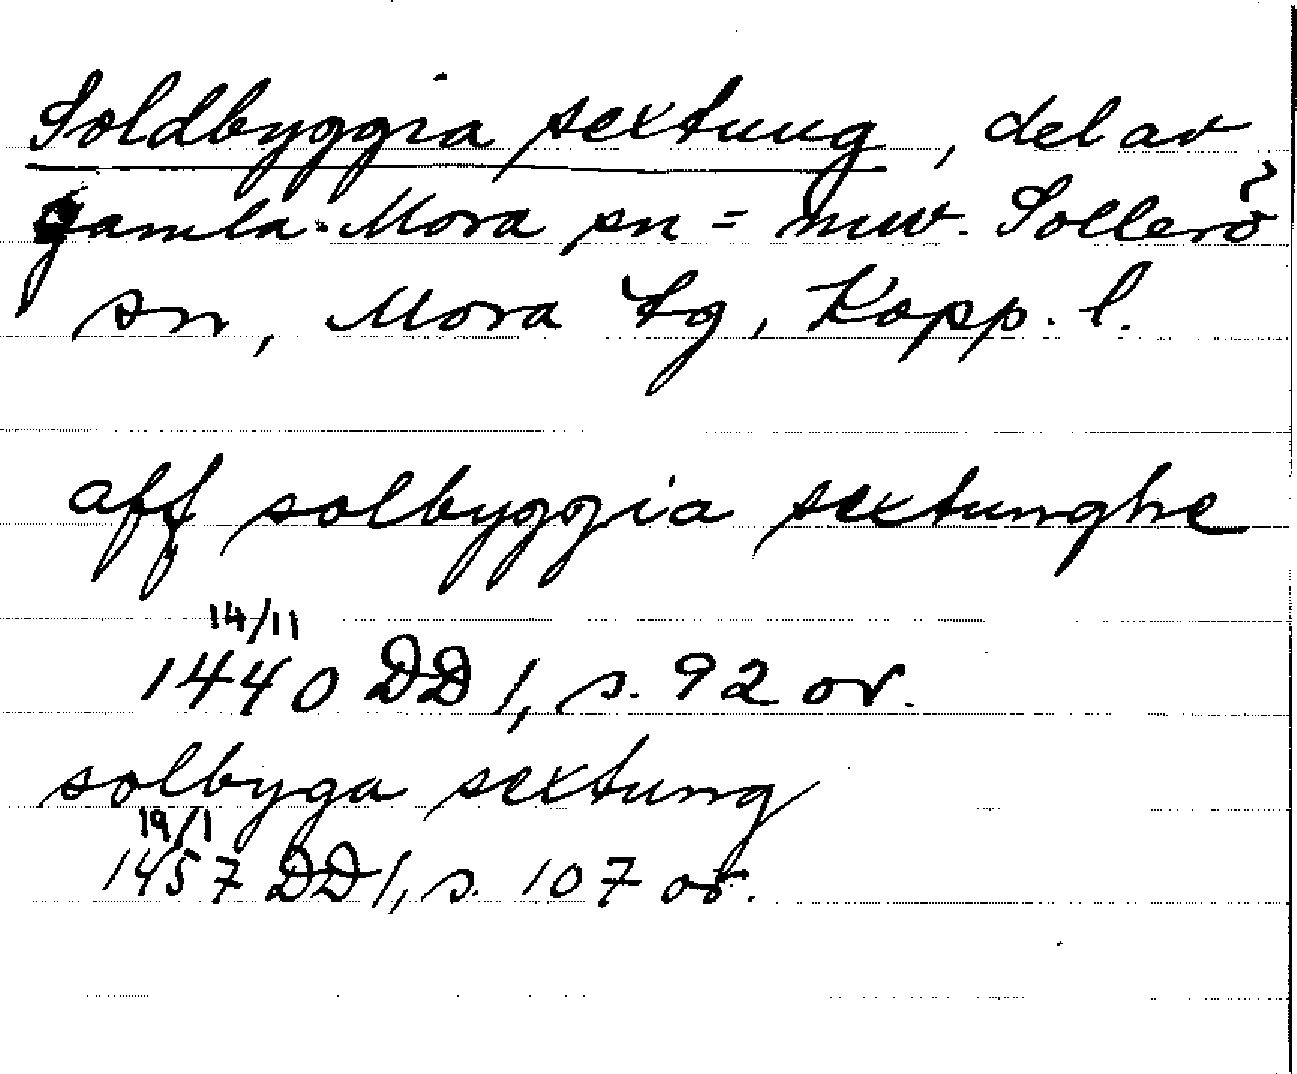 Soldbyggia sextung, del av
gamla Mora sn = nuv. Sollerö
sn, Mora tg, Kopp. l.
aff solbyggia sextunghe
14/11
1440 DD 1, s. 92 or.
solbyga sextung
19/1
1457 DD 1, s. 107 or.